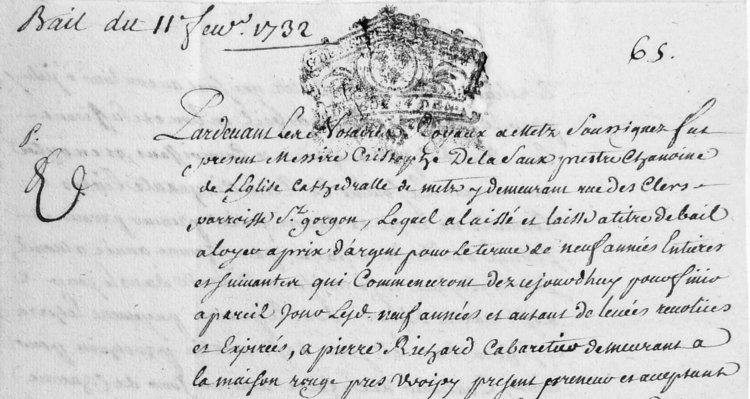 Bail du 11 fevr. 1732
65.
P.
Pardevant Les Notaires Royaux a Metz Soussignez fut
present Messire Cristophe De la Saux prestre Chanoine
de L'Eglise Cathedralle de metz y demeurant rue des Clers
parroisse St. gorgon, Lequel a laissé et laisse a titre de bail
a loyer a prix d'argent pour le terme de neuf années Entieres
et suivantes qui Commenceront dez cejourdhuy pour finir
a pareil Jour Lesd. neuf années et autant de levées revolües
et Expirées, a pierre Richard Cabaretier demeurant a
la maison rouge pres Woipy present preneur et acceptant